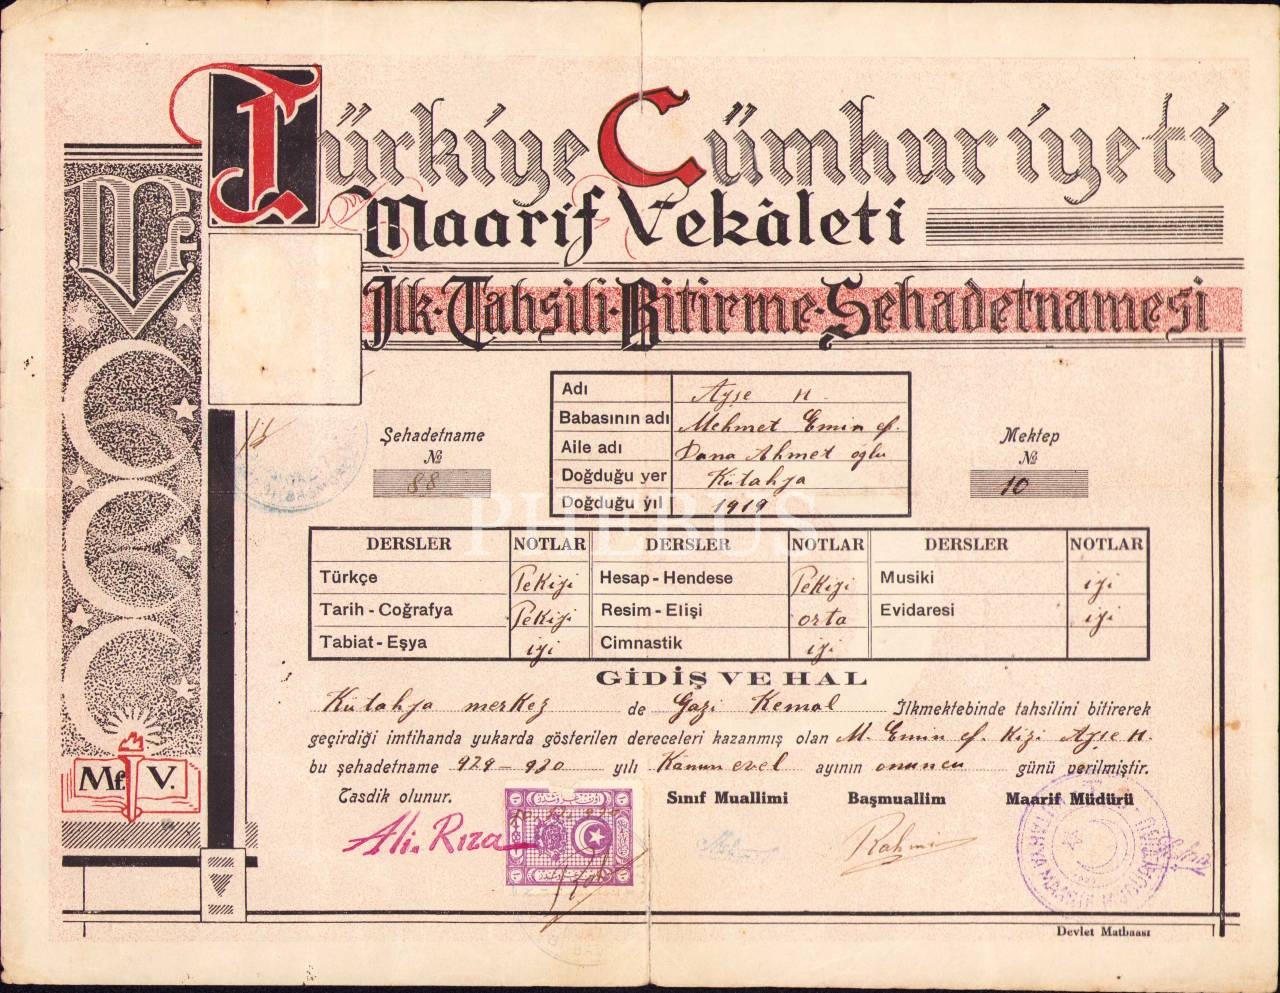 Türkiye Cümhuriyeti
Maarif Vekâleti
İlk-Tahsili-Bitirme-Şehadetnamesi
Mf
Adı Ayşe H.
Babasının adı Mehmet Emin ef.
Aile adı Dana Ahmet oğlu
Doğduğu yer Kütahya
Doğduğu yıl 1919
Şehadetname
№
88
Mektep
№
10
PHEBUS
DERSLER NOTLAR DERSLER NOTLAR DERSLER NOTLAR
Türkçe Pekiyi Hesap-Hendese Pekiyi Musiki iyi
Tarih-Coğrafya Pekiyi Resim-Elişi orta Evidaresi iyi
Tabiat-Eşya iyi Cimnastik iyi
GİDİŞ VE HAL
Kütahya merkez de Gazi Kemal İlkmektebinde tahsilini bitirerek
geçirdiği imtihanda yukarda gösterilen dereceleri kazanmış olan M. Emin ef. Kizi Ayşe H.
bu şehadetname 929-930 yılı Kanunuevel ayının onuncu günü verilmiştir.
Mf. V.
Tasdik olunur. Sınıf Muallimi Başmuallim Maarif Müdürü
Ali. Rıza
Rahmi
Devlet Matbaası